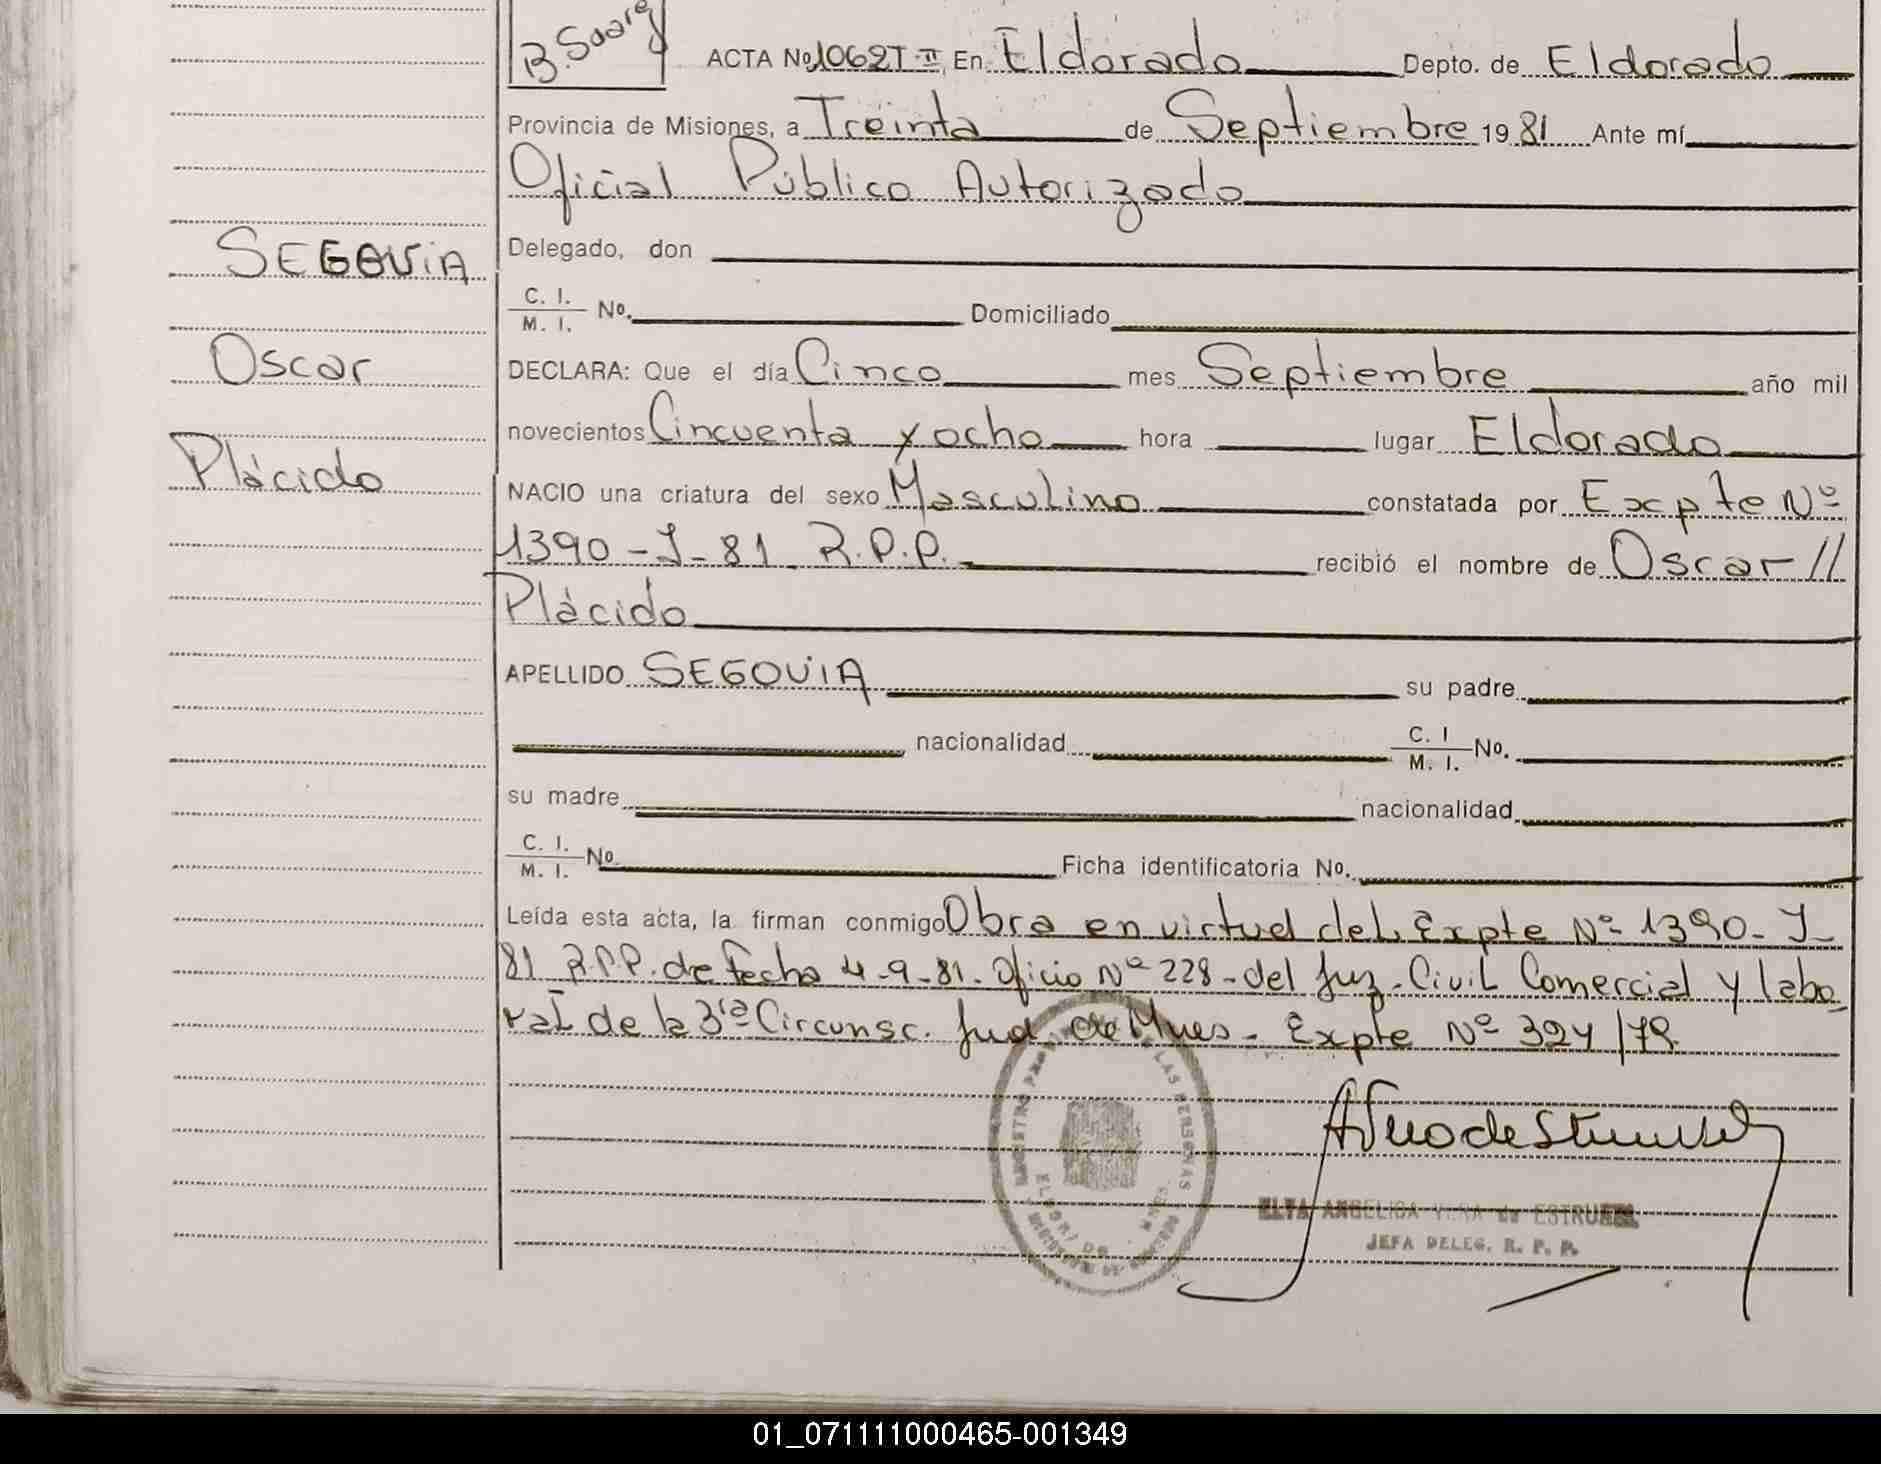 B. Suarez
ACTA No. 1062 T-II En Eldorado Depto. de Eldorado
Provincia de Misiones, a Treinta de Septiembre 1981 Ante mí
Oficial Público Autorizado
Delegado, don
SEGOVIA
C. I.
M. I. No. Domiciliado
Oscar
DECLARA: Que el día Cinco mes Septiembre año mil
novecientos Cincuenta y ocho hora lugar Eldorado
Plácido
NACIO una criatura del sexo Masculino constatada por Expte Nº
1390-J-81 R.P.P. recibió el nombre de Oscar //
Plácido
APELLIDO SEGOVIA su padre
nacionalidad C. I. M. I. No.
su madre nacionalidad
C. I. M. I. No. Ficha identificatoria No.
Leída esta acta, la firman conmigo Obra en virtud del Expte Nº 1390-J-
81 R.P.P. de fecha 4-9-81. Oficio Nº 228-del Juz. Civil Comercial y labo-
ral de la 3ra Circunsc. Jud. de Mnes- Expte Nº 324/79
LAS PERSONAS
ELDORADO
ANGELICA VERA de
JEFA DELEG. R. P. P.
01_071111000465-001349